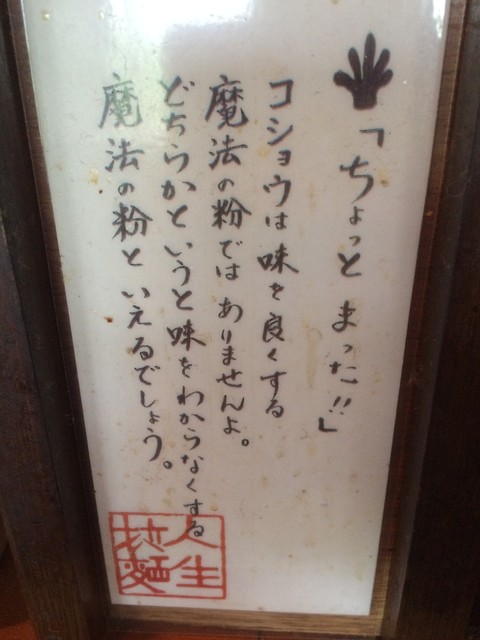 「ちょっと まった!!」
コショウは味を良くする
魔法の粉では ありませんよ。
どちらかというと味をわからなくする
魔法の粉と いえるでしょう。
人生
拉麺